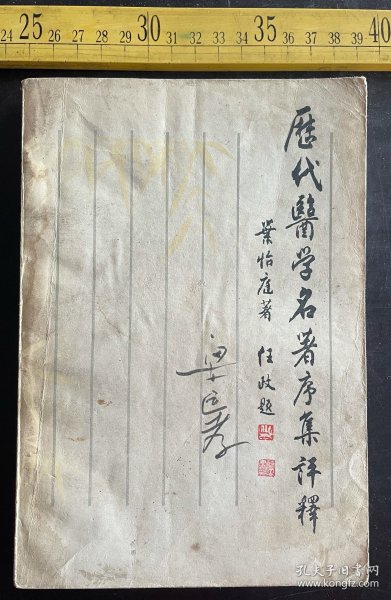 24 25 26 27 28 29 30 31 32 33 34 35 36 37 38 39 40
歷代醫学名著序集評釋
葉怡庭著 任政題
孔夫子旧书网
www.kongfz.com